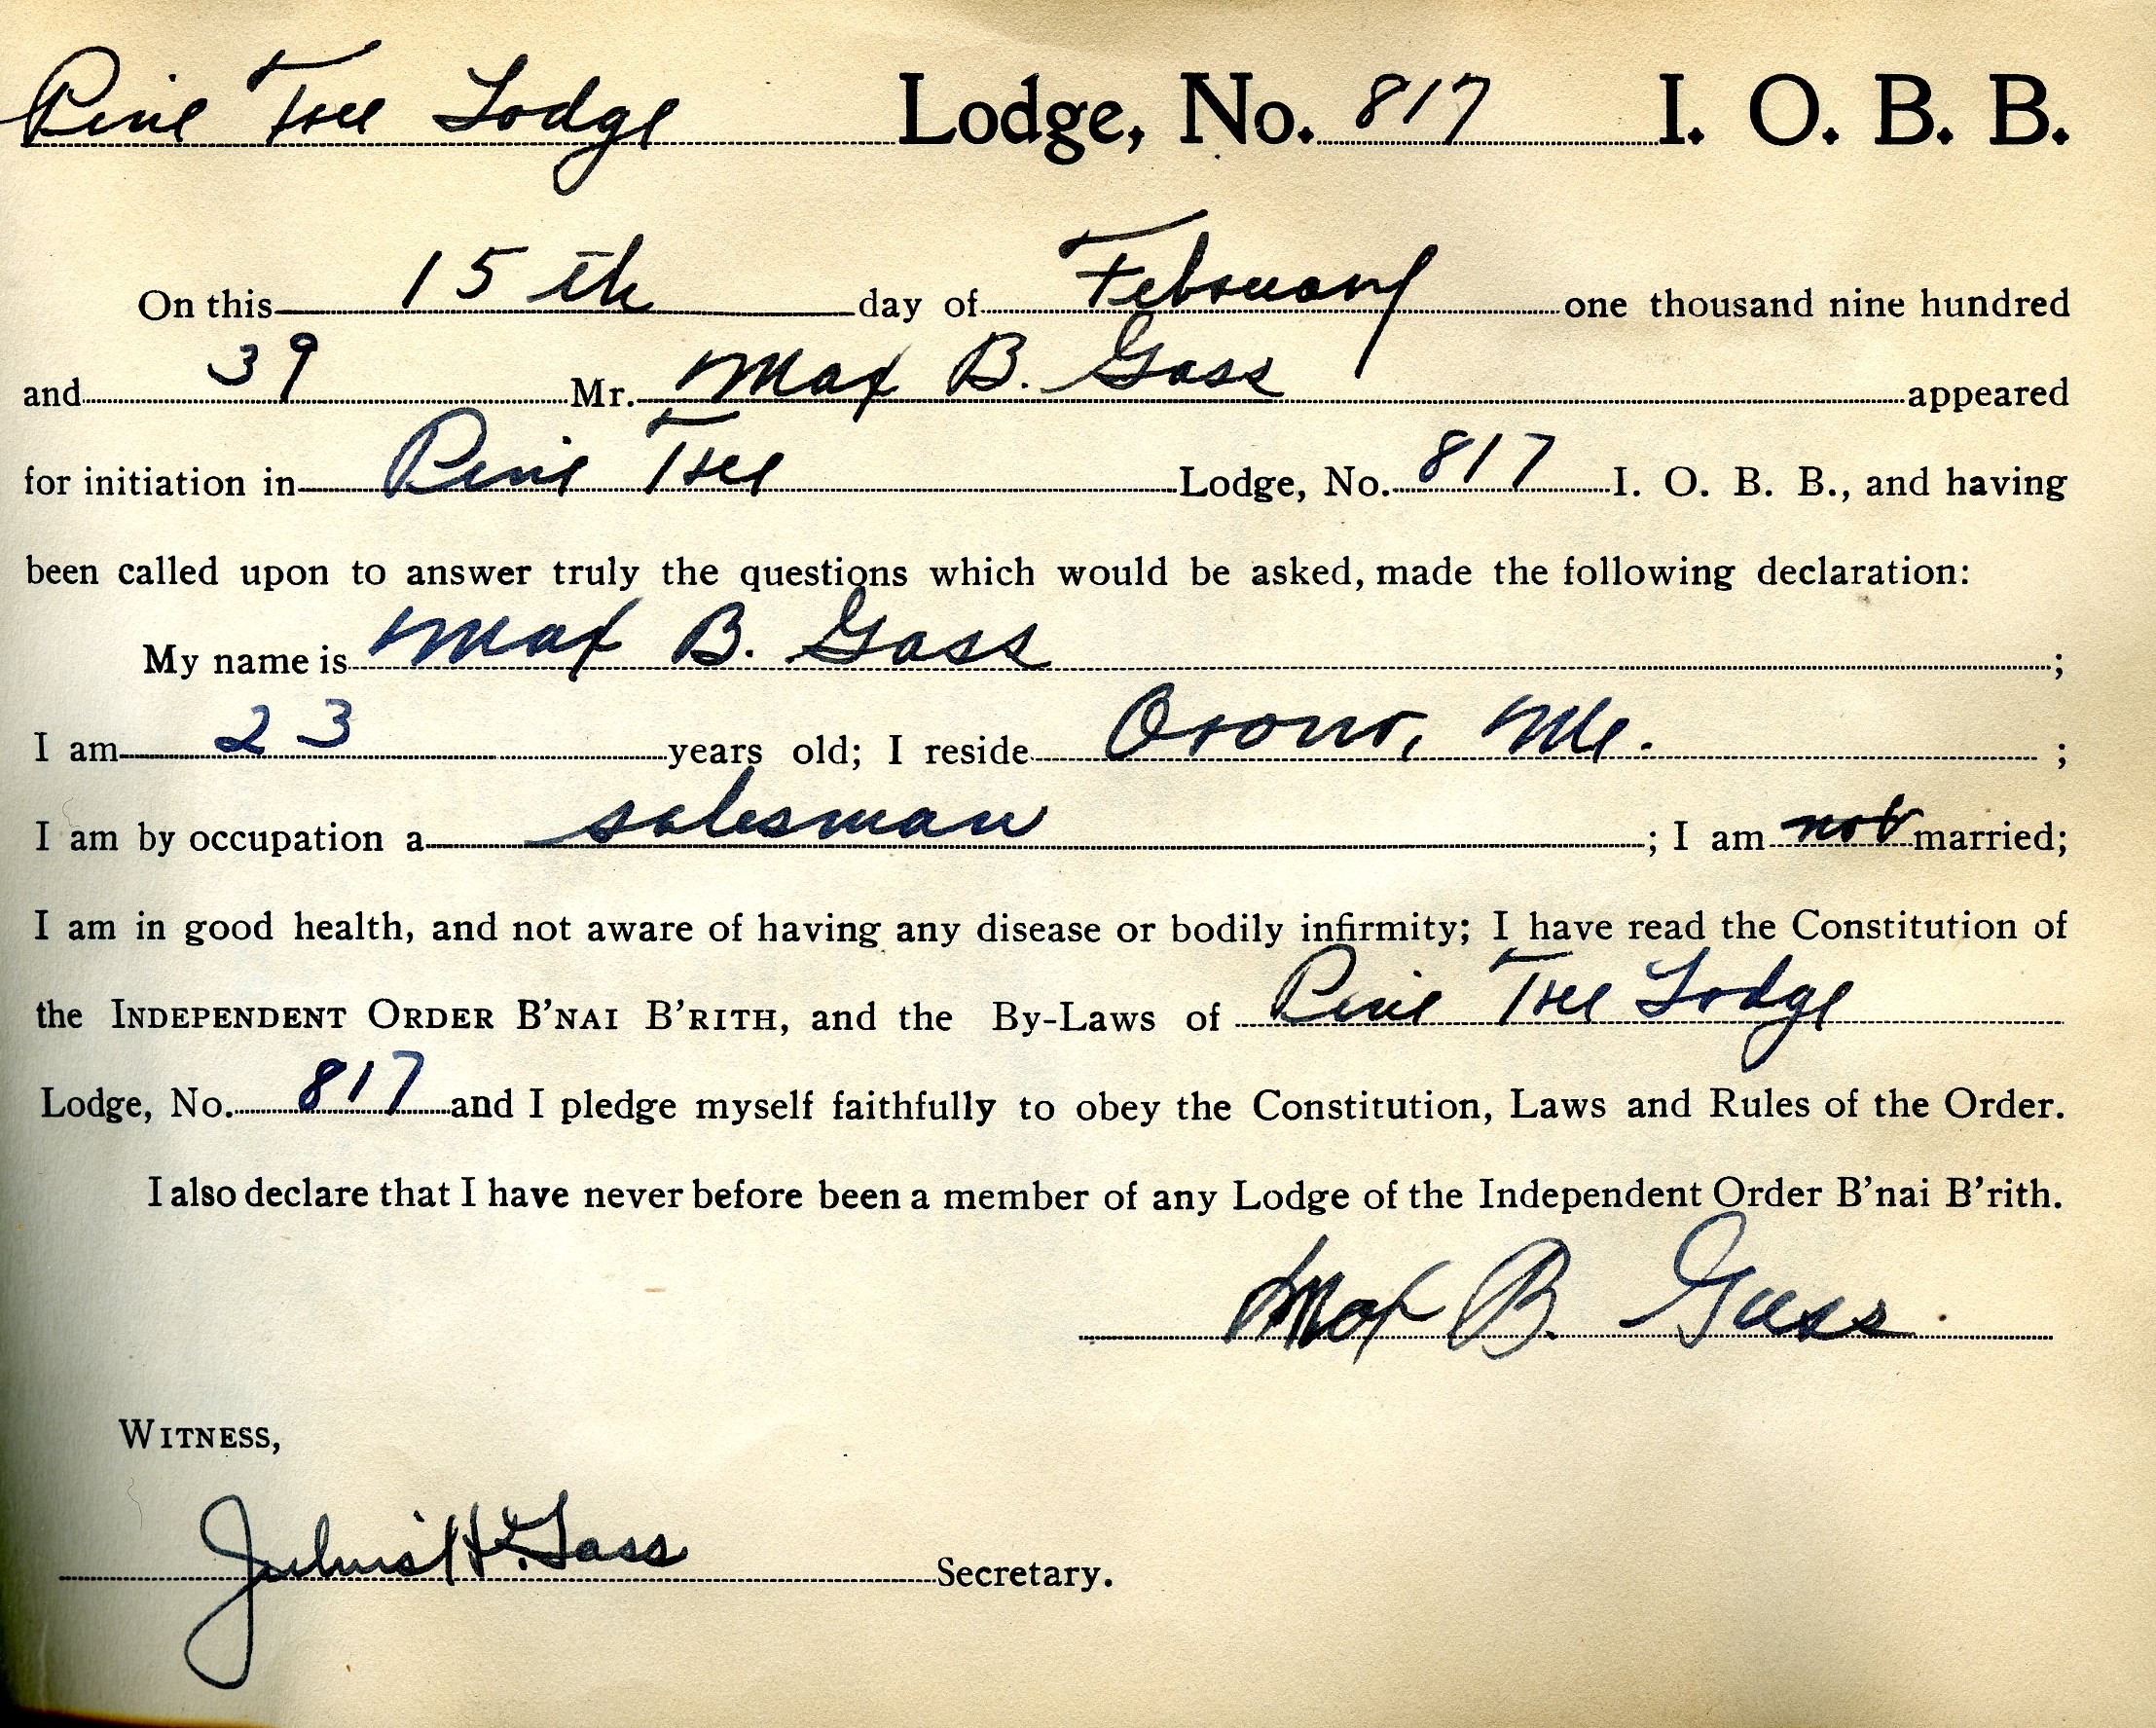 Pine Tree Lodge Lodge, No. 817 I. O. B. B.
On this 15th day of February one thousand nine hundred
and 39 Mr. Max B. Gass appeared
for initiation in Pine Tree Lodge, No. 817 I. O. B. B., and having
been called upon to answer truly the questions which would be asked, made the following declaration:
My name is Max B. Gass ;
I am 23 years old; I reside Orono, Me. ;
I am by occupation a salesman ; I am not married;
I am in good health, and not aware of having any disease or bodily infirmity; I have read the Constitution of
the INDEPENDENT ORDER B'NAI B'RITH, and the By-Laws of Pine Tree Lodge
Lodge, No. 817 and I pledge myself faithfully to obey the Constitution, Laws and Rules of the Order.
I also declare that I have never before been a member of any Lodge of the Independent Order B'nai B'rith.
Max B. Gass
WITNESS,
Julius H. Gass Secretary.